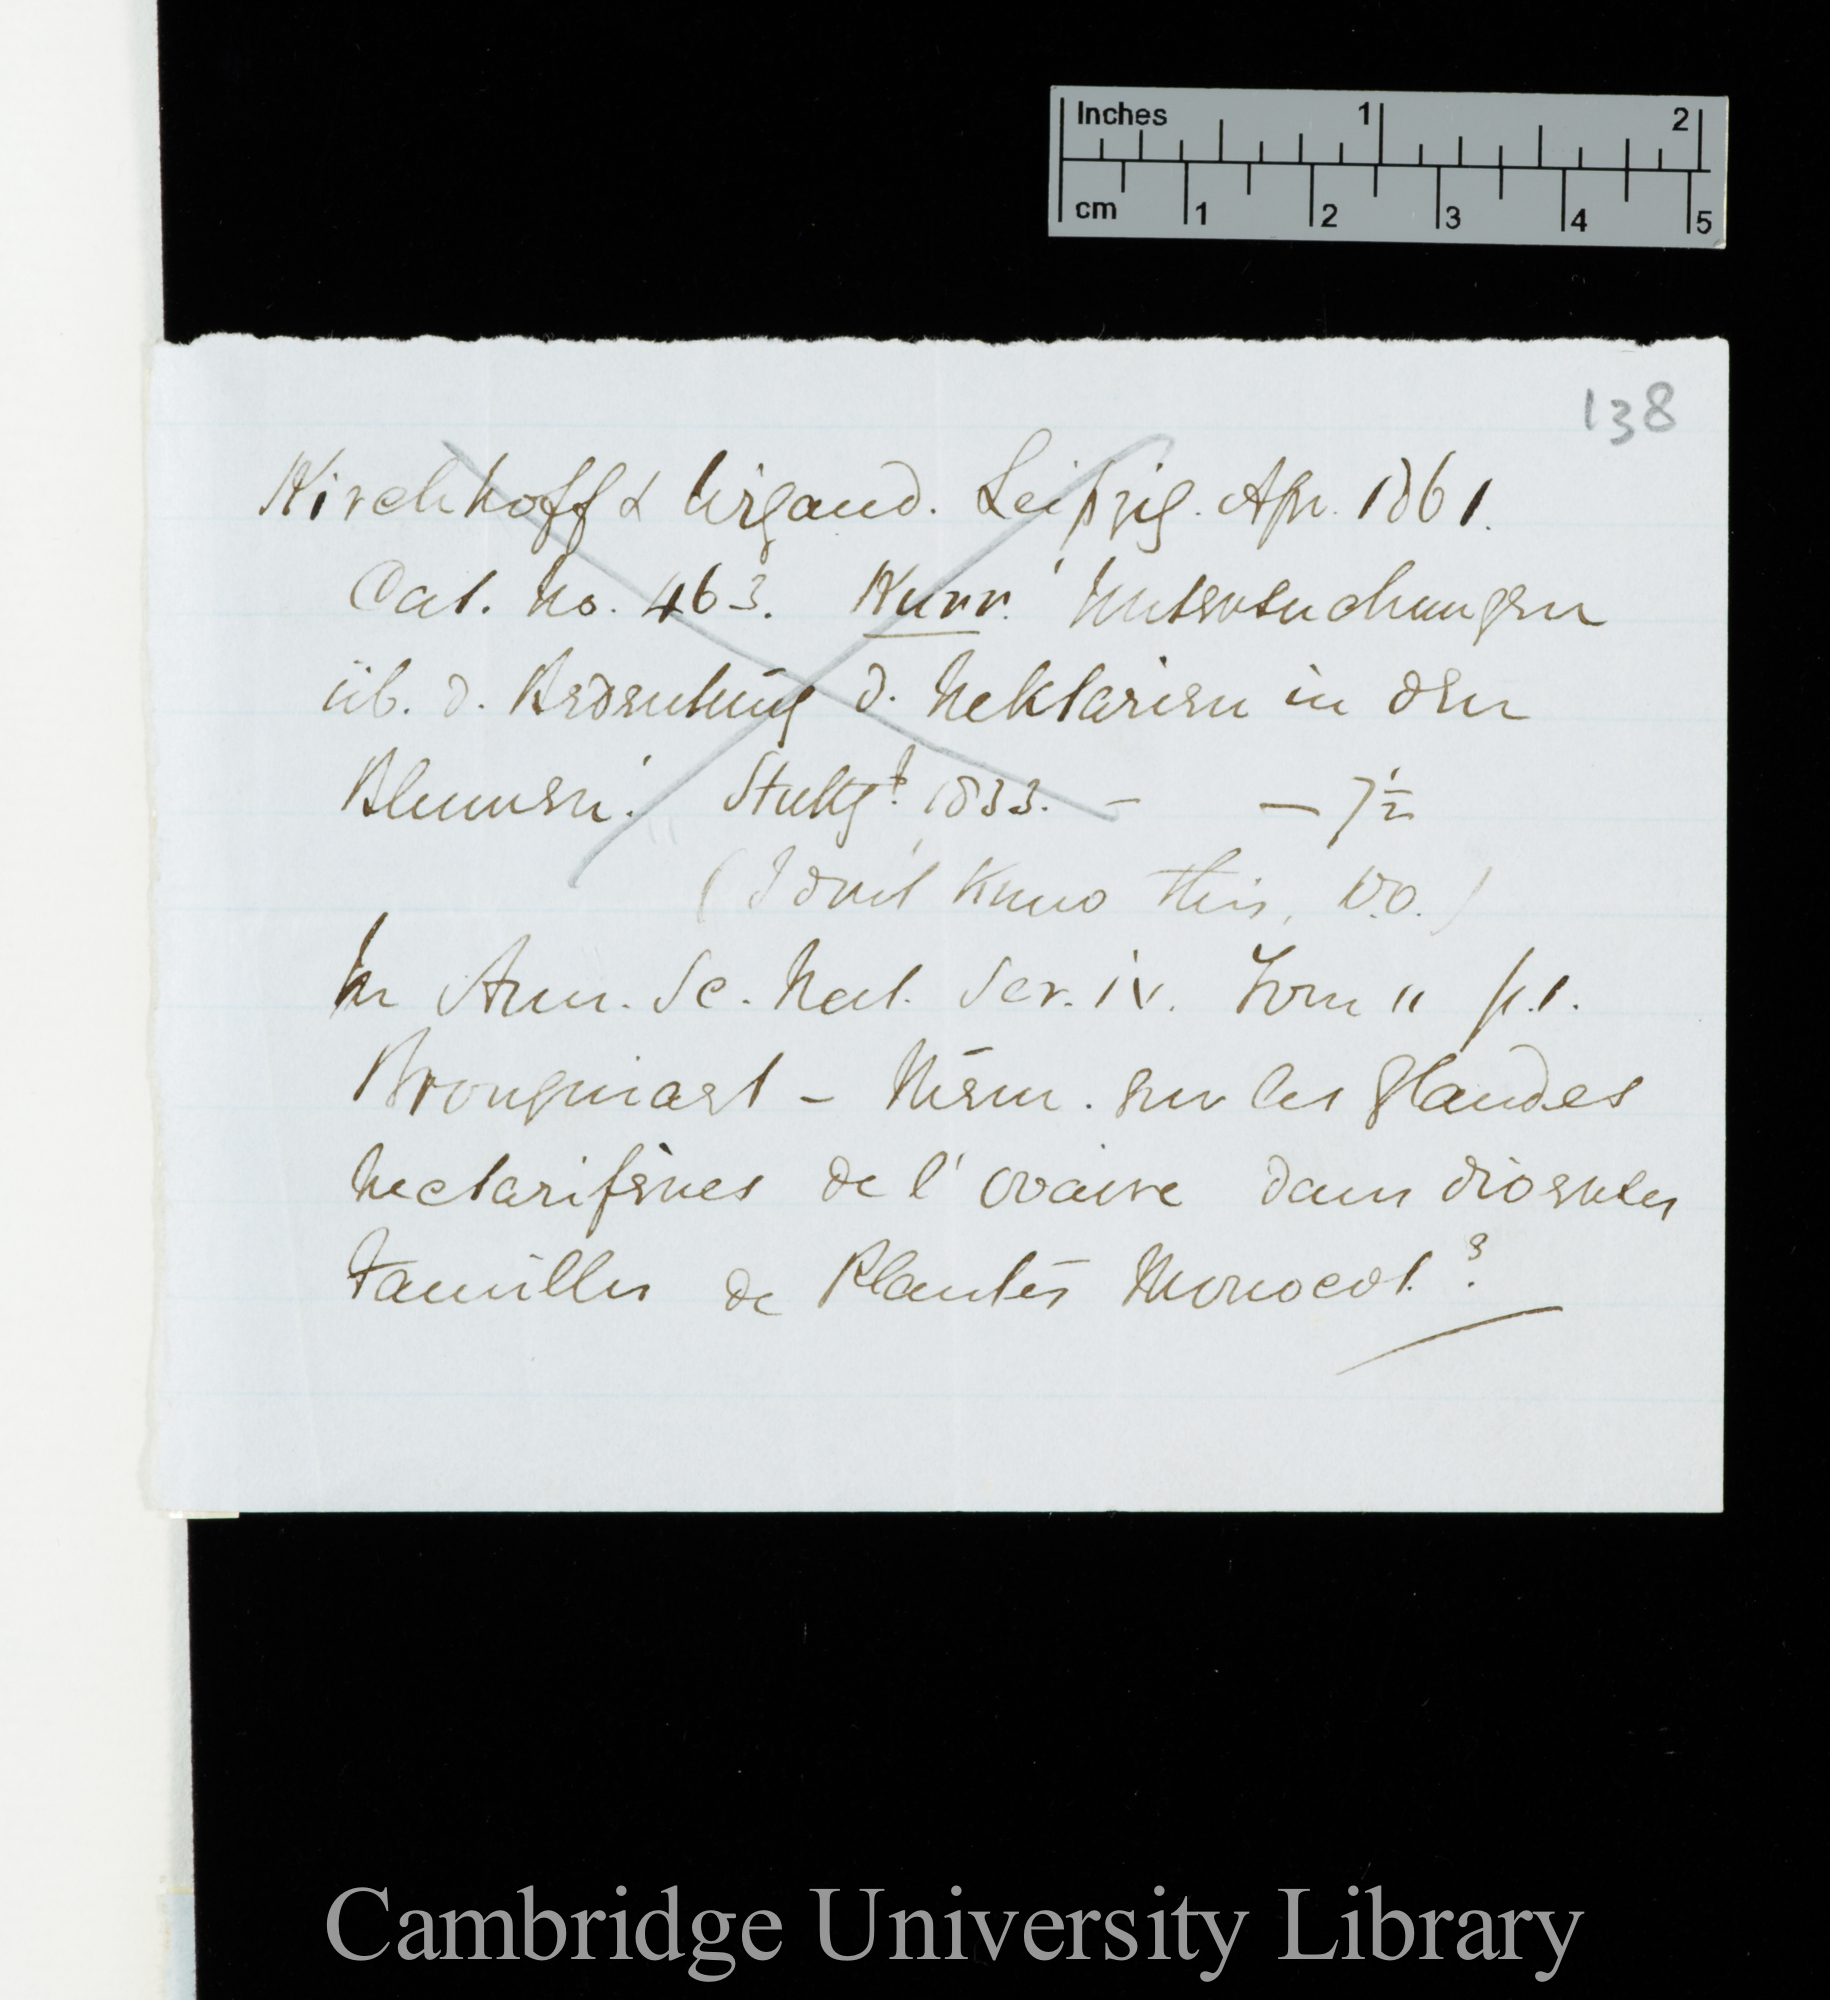 Inches 1 2
cm 1 2 3 4 5
138
Kirchhoff & Wigand. Leipzig. Apr. 1861.
Cat. No. 463. Kurr. 'Untersuchungen
üb. d. Bedeutung d. Nektarien in den
Blumen'. Stuttgt. 1833. — — 7½
(I don't know this, D.O.)
In Ann. Sc. Nat. Ser. iv. Tom " p. 1.
Brongniart – Mém. sur les glandes
nectarifères de l'ovaire dans diverses
familles de Plantes Monocot.s
Cambridge University Library